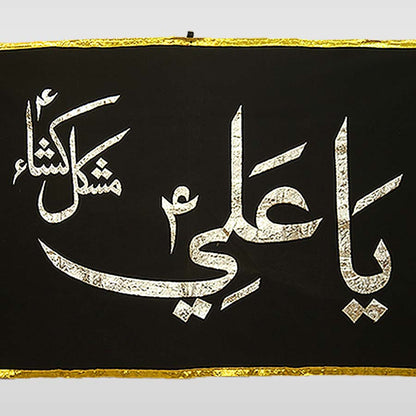 يا علي ؑ
مشکل کشاء ؑ